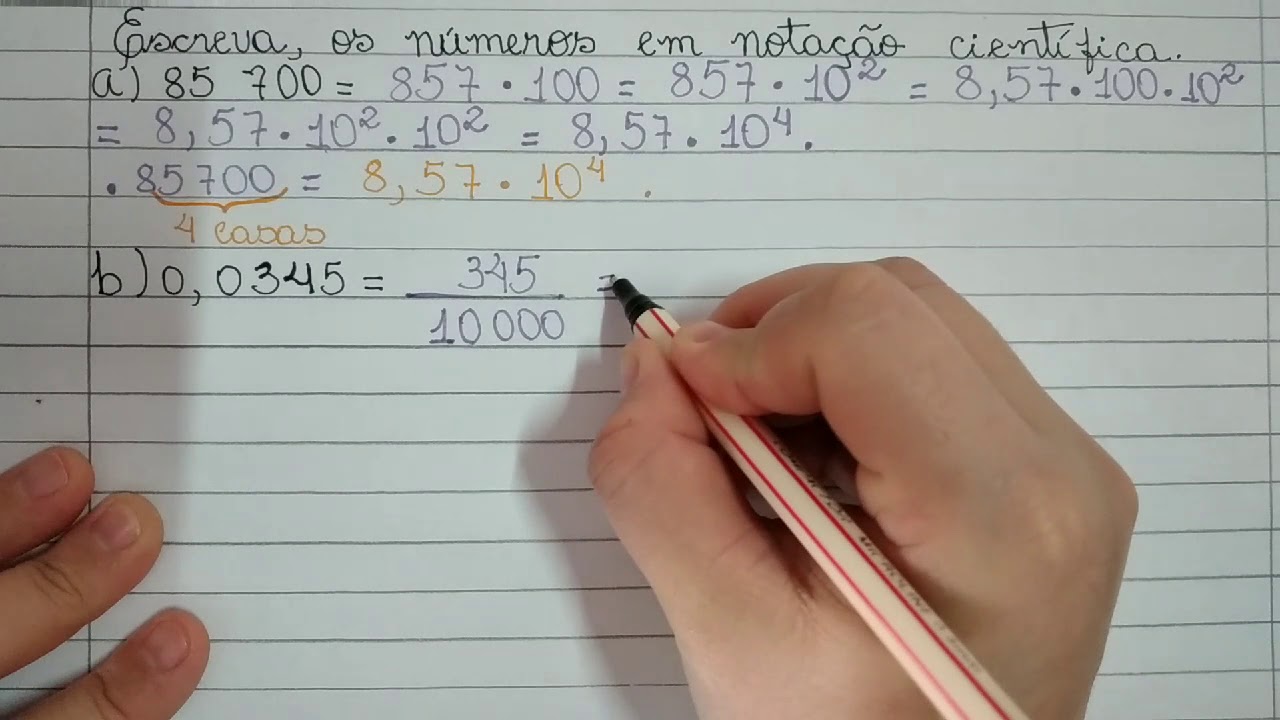 Escreva, os números em notação científica.
a) 85 700 = 857 · 100 = 857 · 10² = 8,57 · 100 · 10²
= 8,57 · 10² · 10² = 8,57 · 10⁴.
· 85700 = 8,57 · 10⁴.
4 casas
b) 0,0345 = 345 =
10 000